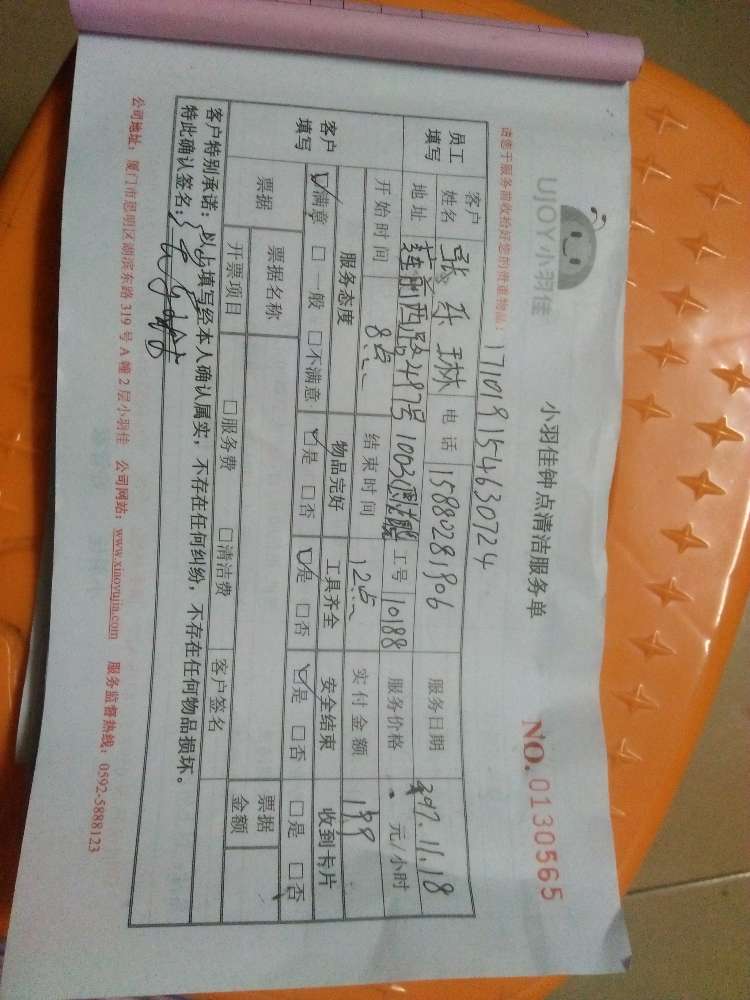 UJOY小羽佳
小羽佳钟点清洁服务单
NO. 0130565
请您于服务前收拾好您的贵重物品:
171019154630724
员工填写 客户姓名 张乐琳 电话 15880281906 服务日期 11.18
地址 莲前西路497号1003 工号 10188 服务价格 元/小时
开始时间 8点 结束时间 12点 实付金额 199
客户填写 服务态度 物品完好 工具齐全 安全结束 收到卡片
☑满意 □一般 □不满意 ☑是 □否 ☑是 □否 ☑是 □否 □是 □否
票据 票据名称 票据金额
开票项目 □服务费 □清洁费 客户签名
客户特别承诺:以上填写经本人确认属实;不存在任何纠纷,不存在任何物品损坏。
特此确认签名:
公司地址:厦门市思明区湖滨东路319号A幢2层小羽佳 公司网站:www.xiaoyujia.com 服务监督热线:0592-5888123